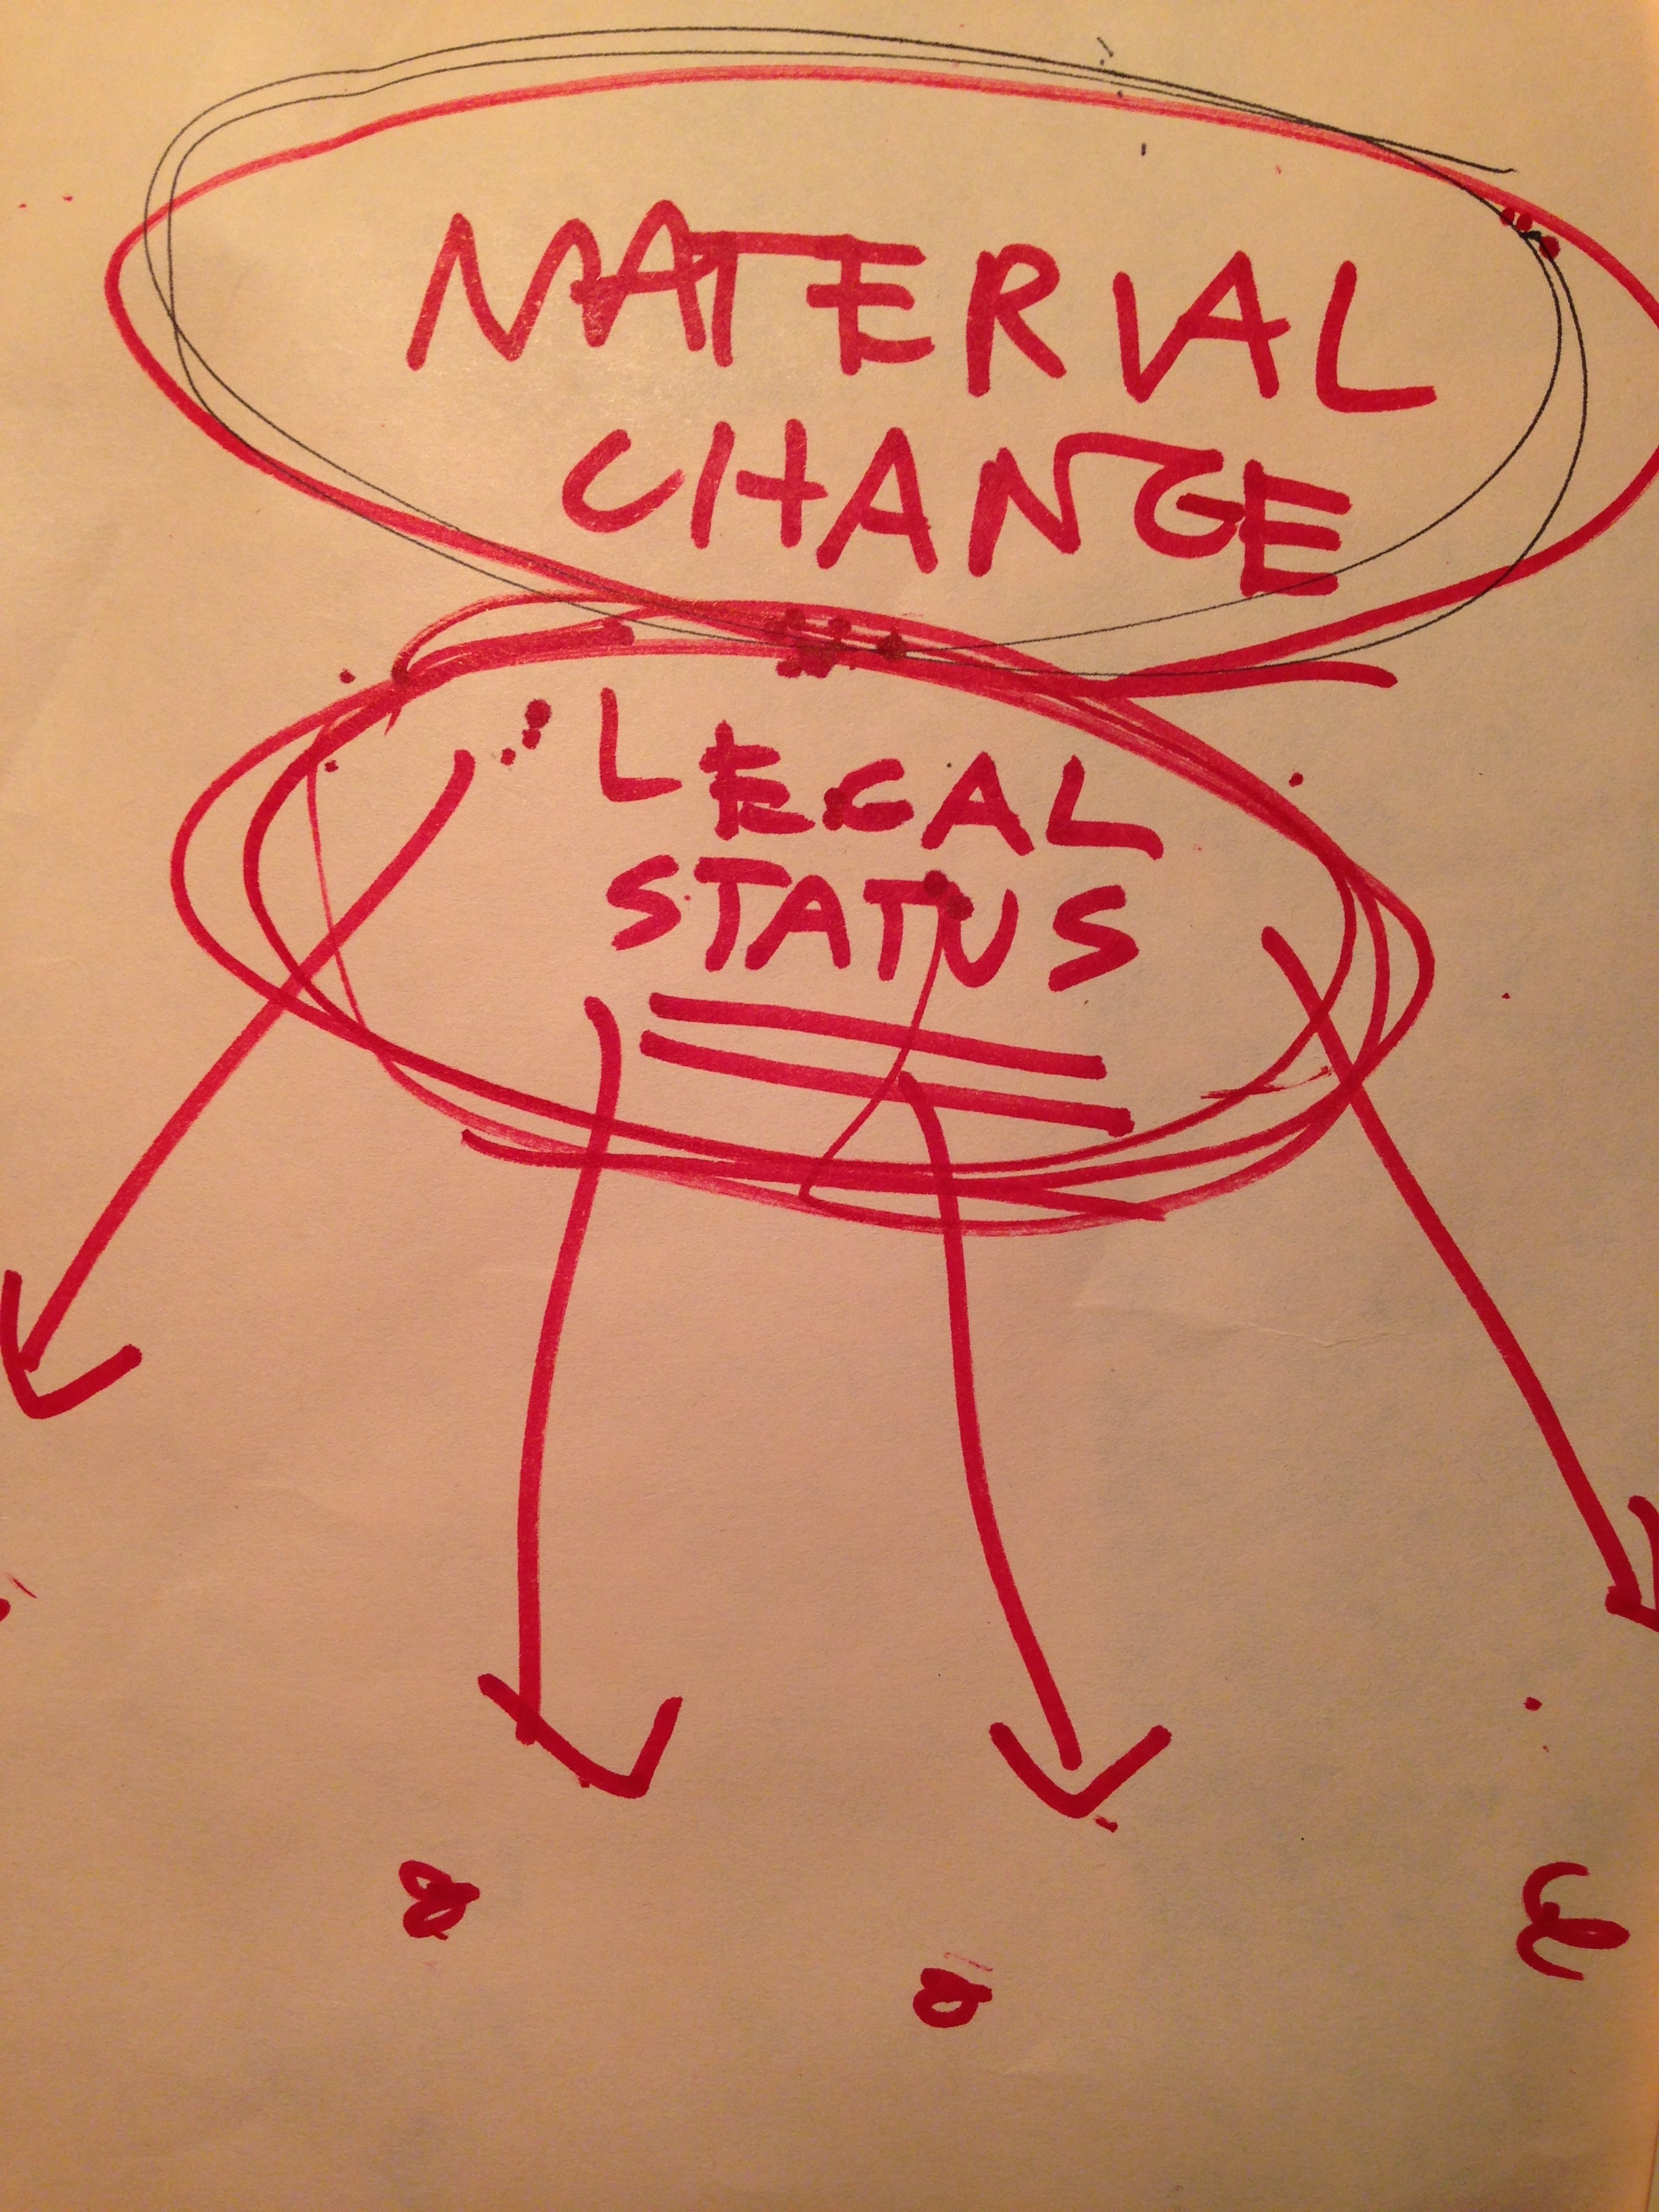 MATERIAL
CHANGE
LEGAL
STATUS